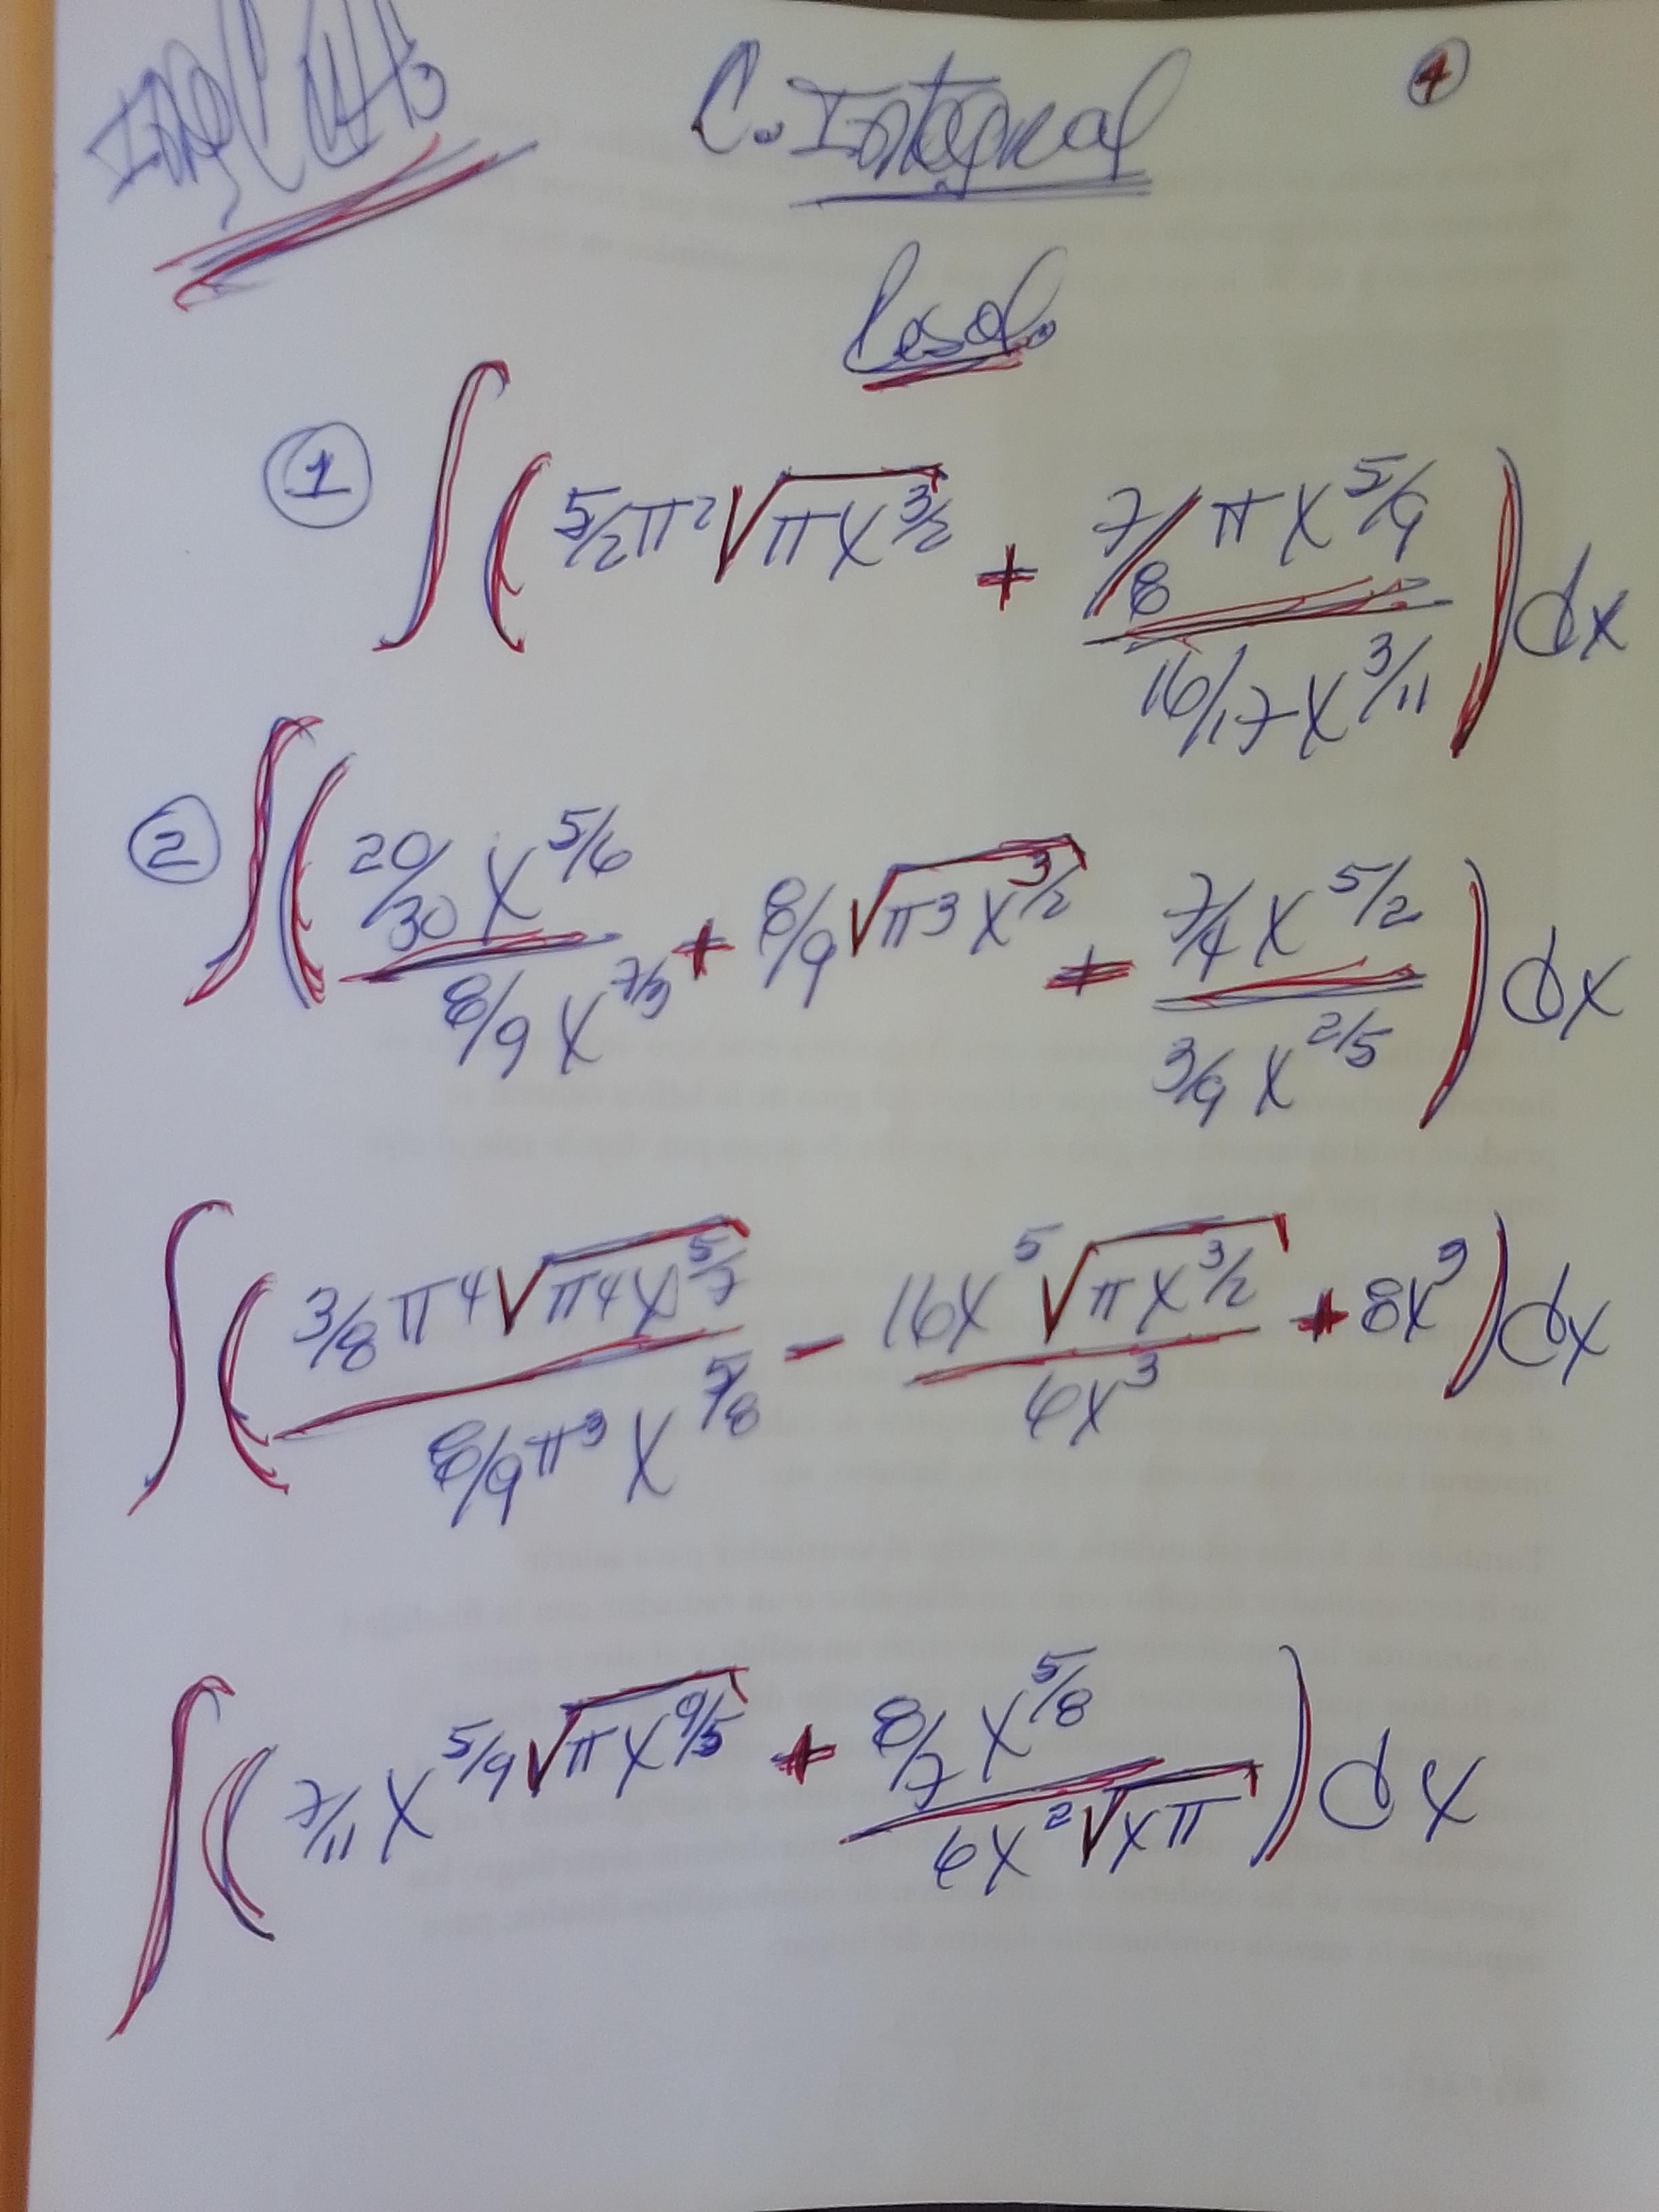 C. Integral ④
Resol.
① ∫ ( 5/2 π² √(π x^(3/2)) + (7/8 π x^(5/9)) / (16/17 x^(3/11)) ) dx
② ∫ ( (20/30 x^(5/6)) / (8/9 x^(7/3)) + 8/9 √(π³ x^(3/2)) + (7/4 x^(5/2)) / (3/9 x^(2/5)) ) dx
∫ ( (3/8 π⁴ √(π⁴ x^(5/7))) / (8/9 π³ x^(7/8)) - (16x ⁵√(π x^(3/2))) / (6x³) + 8x⁹ ) dx
∫ ( 7/11 x^(5/9) √(π x^(9/5)) + (8/7 x^(5/8)) / (6x ²√(xπ)) ) dx